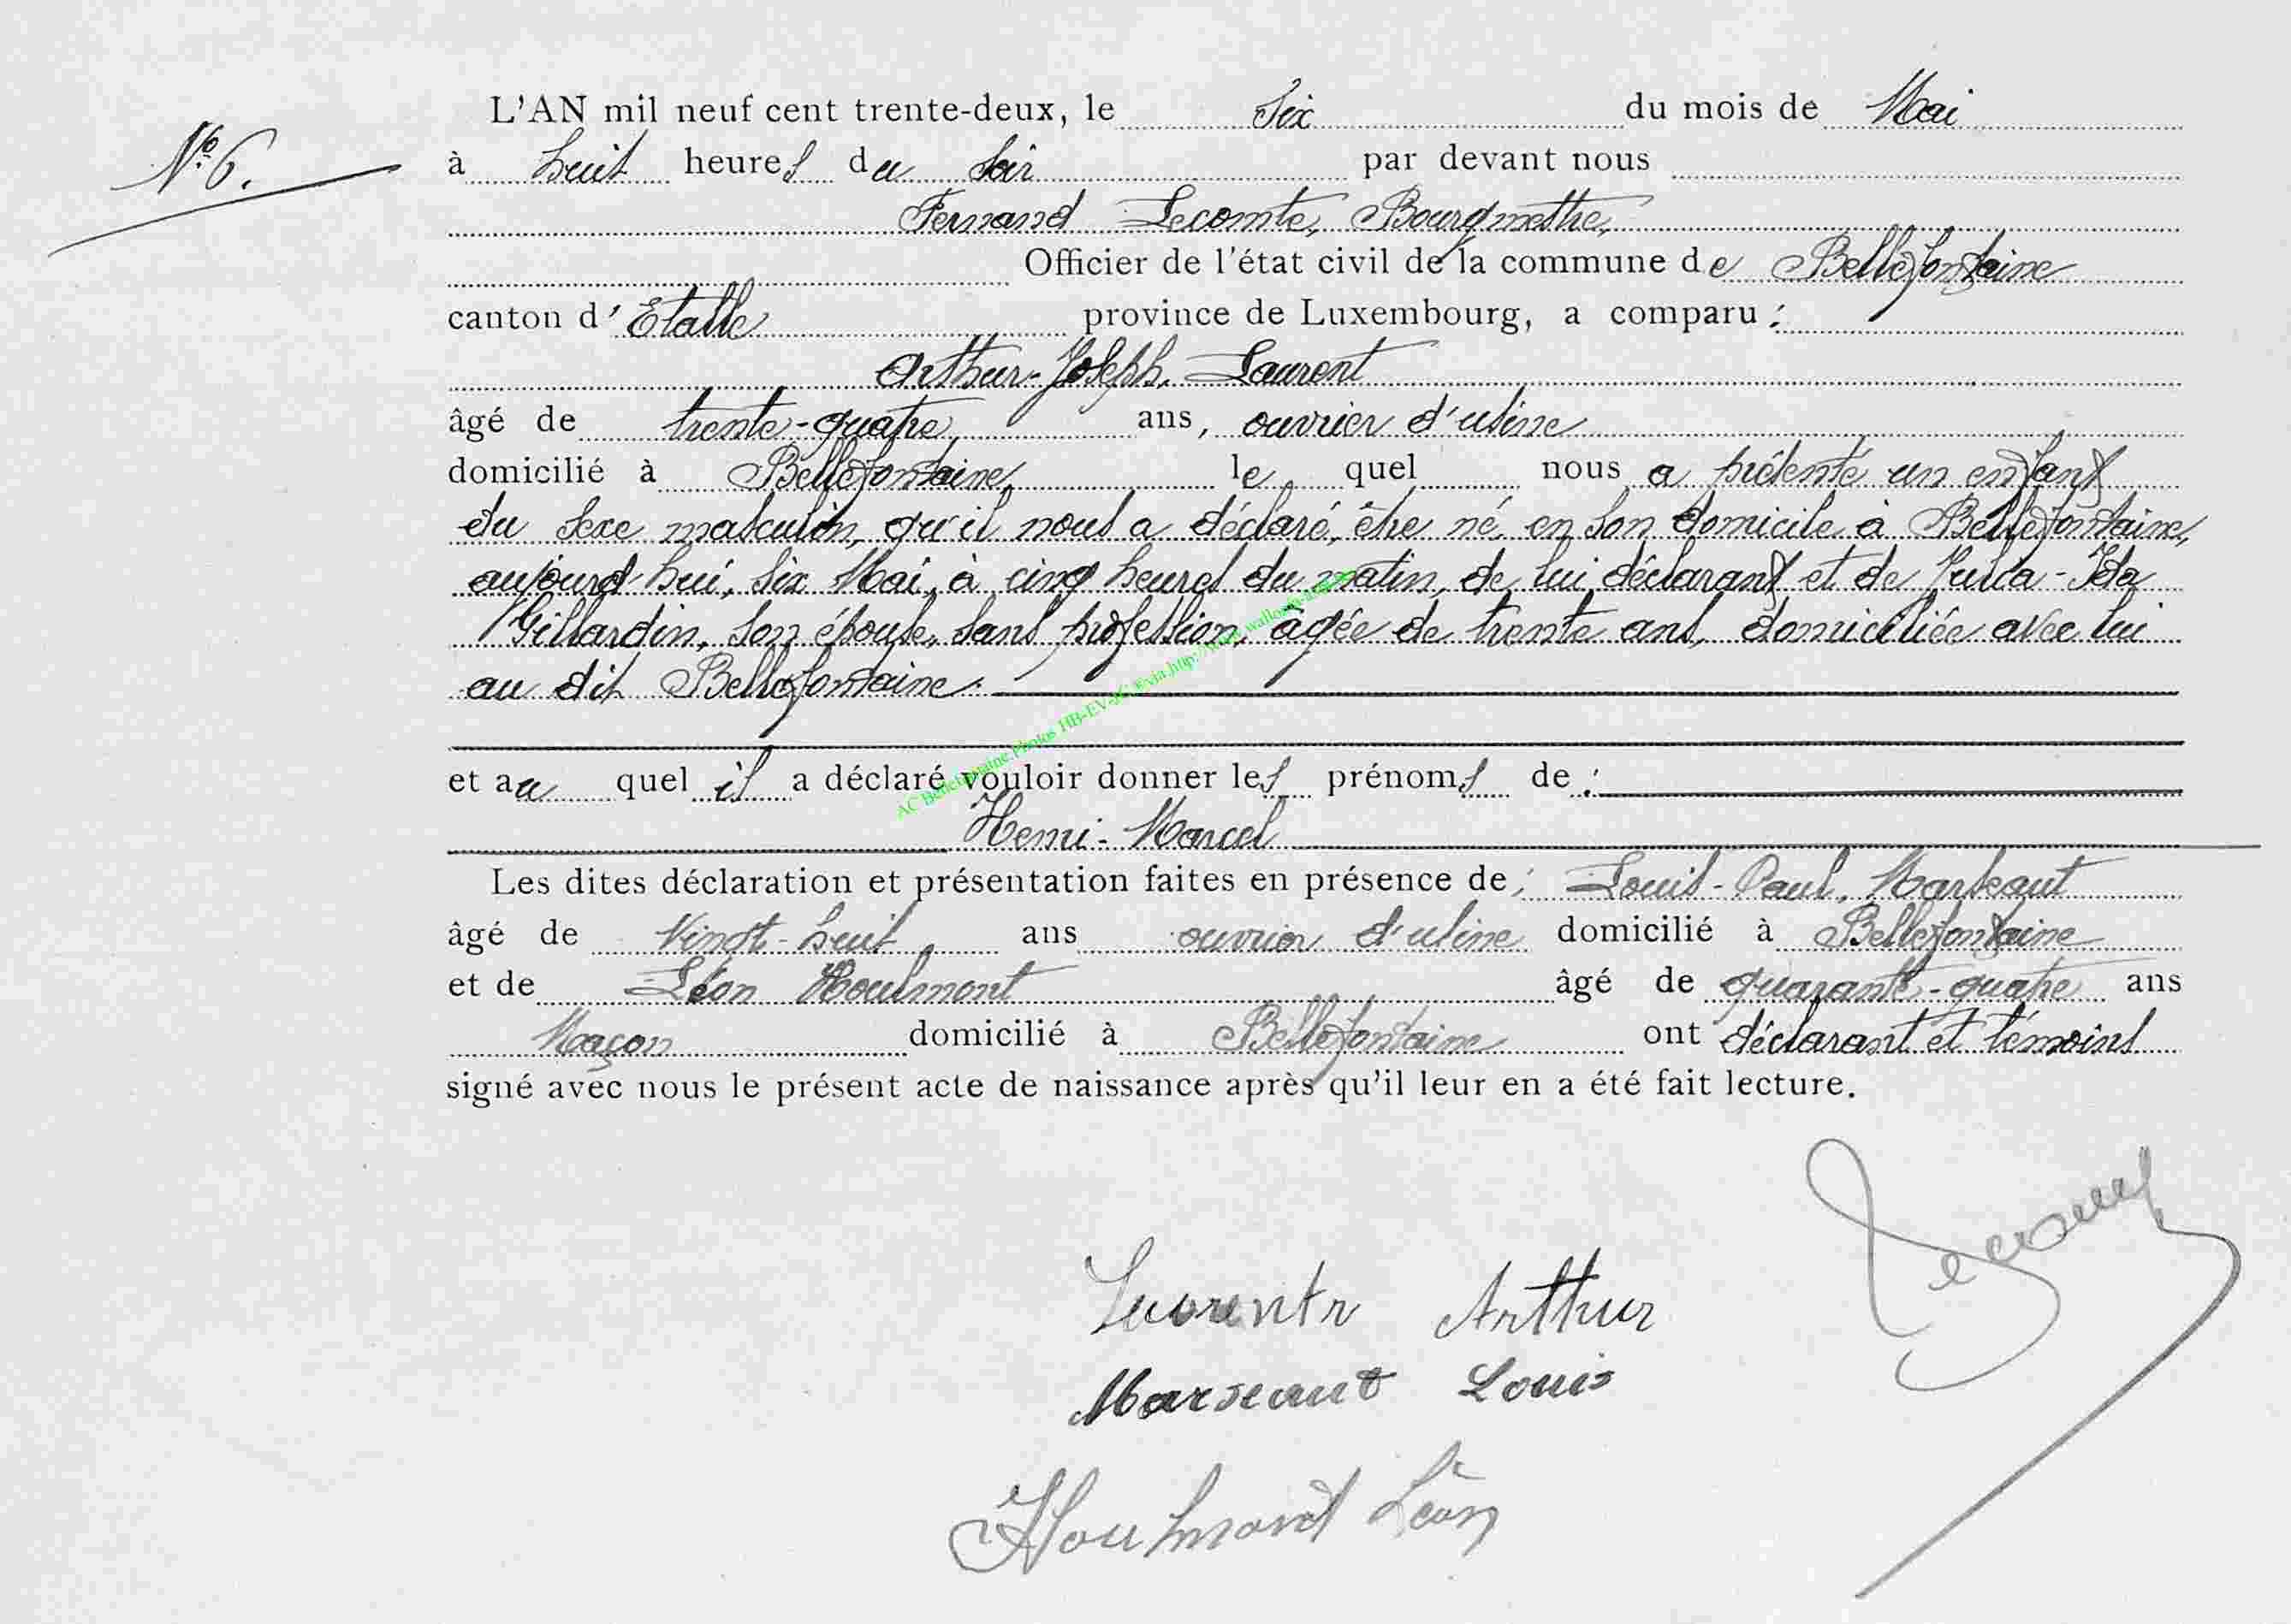 N.º 6.
L'AN mil neuf cent trente-deux, le Six du mois de Mai
à huit heures du soir par devant nous
Fernand Lecomte, Bourgmestre,
Officier de l'état civil de la commune de Bellefontaine
canton d'Etalle province de Luxembourg, a comparu :
Arthur-Joseph, Laurent
âgé de trente-quatre ans, ouvrier d'usine
domicilié à Bellefontaine, le quel nous a présenté un enfant
du sexe masculin, qu'il nous a déclaré, être né, en son domicile à Bellefontaine,
aujourd'hui, six Mai, à cinq heures du matin, de lui déclarant et de Julia-Ida
Gillardin, son épouse, sans profession, âgée de trente ans, domiciliée avec lui
au dit Bellefontaine.
et au quel il a déclaré vouloir donner les prénoms de :
Henri-Marcel
Les dites déclaration et présentation faites en présence de : Louis-Paul, Marseaut
âgé de Vingt-huit ans ouvrier d'usine domicilié à Bellefontaine
et de Léon Houlmont âgé de quarante-quatre ans
Maçon domicilié à Bellefontaine ont déclarant et témoins
signé avec nous le présent acte de naissance après qu'il leur en a été fait lecture.
Laurent Arthur
Marseaut Louis
Houlmont Léon